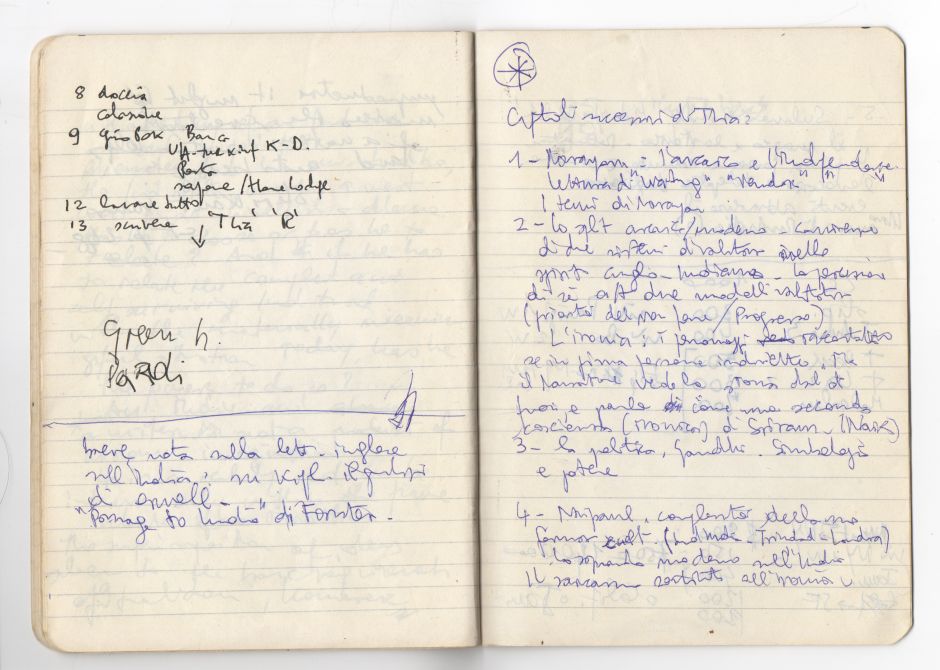 8 doccia
colazione
9 Banca
K-D.
Posta
/Home Lodge
12 lavare tutto
13 scrivere 'Thià' 'R'
Green h.
PaRdi
breve nota sulla lett. inglese
sull'India: su Kipl.
di Orwell -
"Passage to India" di Forster.
Capitoli successivi di Thià:
1 - Narayan: l'arcaico e l'Independence
lettura di "Waiting" "Vendor"
I temi di Narayan
2 - arcaico/moderno
di due sistemi di valutaz
spirito anglo-indiano - la percezione
di sè due modelli valutativi
/Progresso)
L'ironia: i personaggi
se in prima persona indiretto.
il Narratore vede la storia dal di
fuori, e parla come una seconda
coscienza (ironica) di Sriram. (Naik)
3 - la politica, Gandhi. Simbologia
e potere
4 - Naipaul, della sua
cult. (India - Trinidad - Londra)
Lo sguardo moderno sull'India
Il sarcasmo sostituito all'ironia